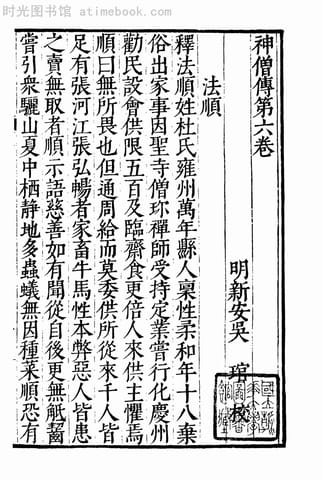 时光图书馆 · atimebook.com
神僧傳第六卷
明新安吳 琯 校
法順
釋法順姓杜氏雍州萬年縣人稟性柔和年十八棄
俗出家事因聖寺僧珎禪師受持定業嘗行化慶州
勸民設會供限五百及臨齋食更倍人來供主懼焉
順曰無所畏也但通周給而莫委供所從來千人皆
足有張河江張弘暢者家畜牛馬性本弊惡人皆患
之賣無取者順示語慈善如有聞從自後更無觝齧
嘗引衆驪山夏中栖静地多蟲蟻無因種菜順恐有